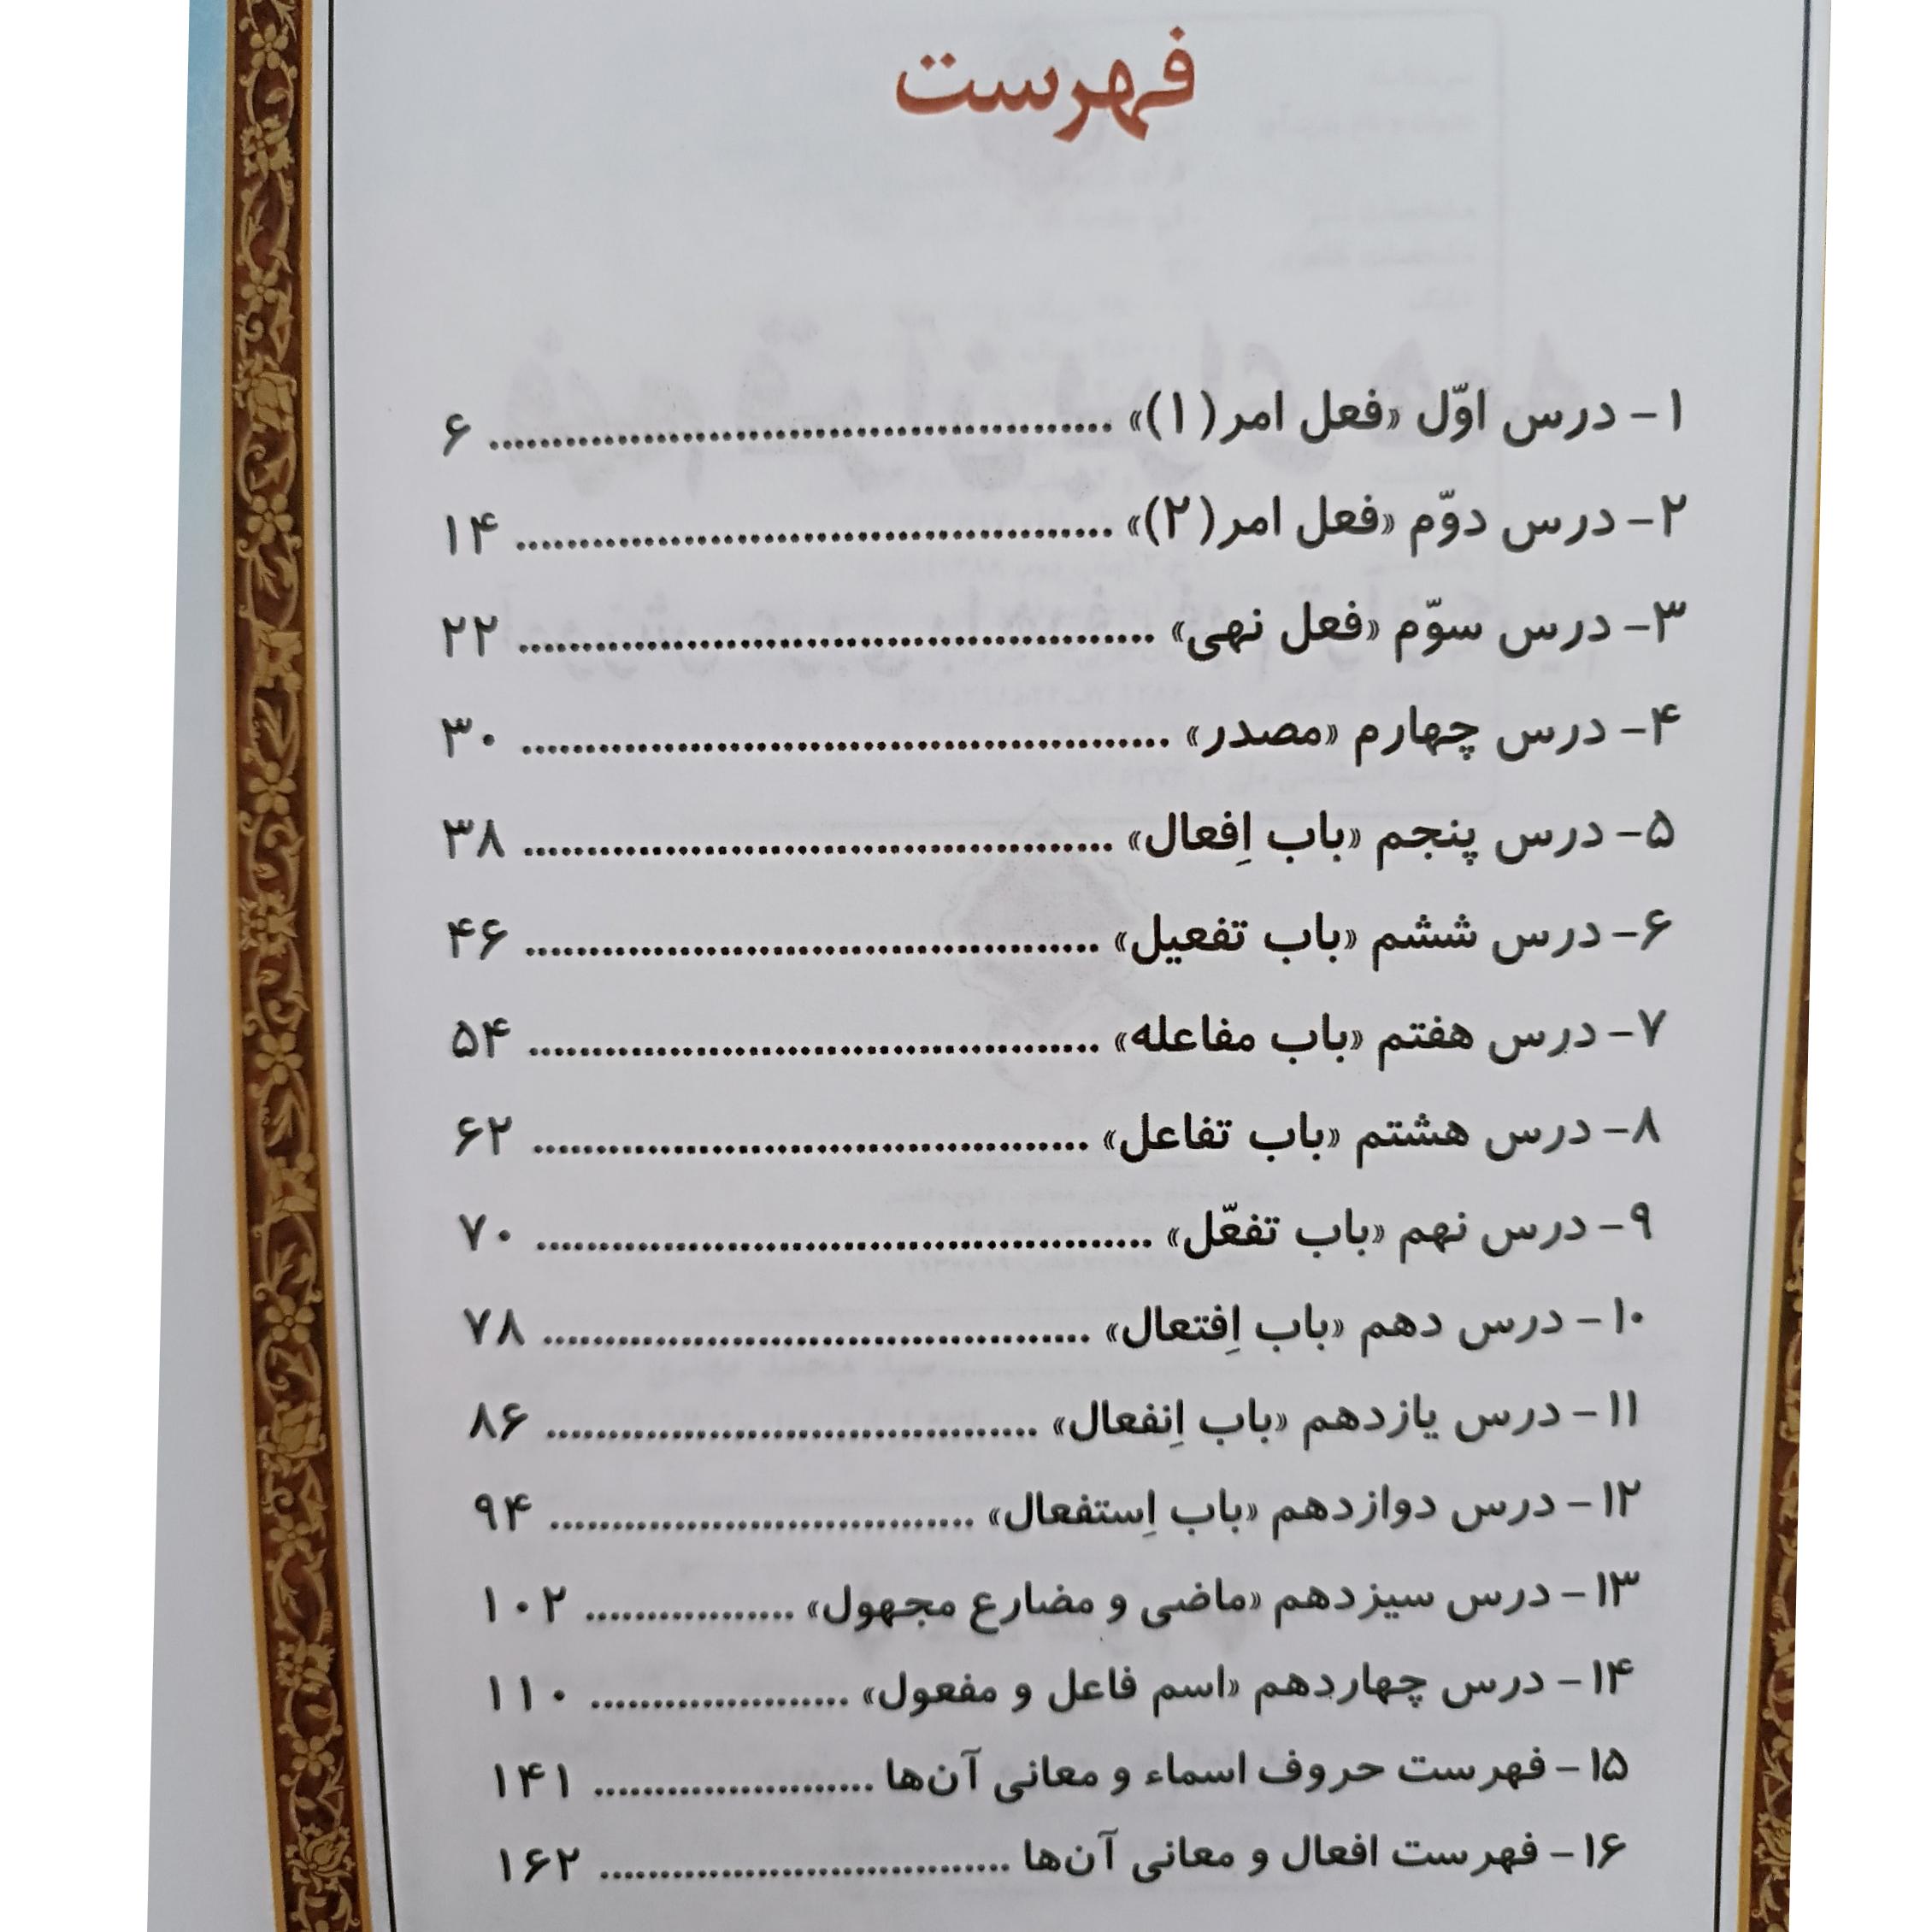 فهرست
۱- درس اوّل «فعل امر(۱)» ................................................ ۶
۲- درس دوّم «فعل امر(۲)» ................................................ ۱۴
۳- درس سوّم «فعل نهی» ................................................ ۲۲
۴- درس چهارم «مصدر» ................................................ ۳۰
۵- درس پنجم «باب اِفعال» ................................................ ۳۸
۶- درس ششم «باب تفعیل» ................................................ ۴۶
۷- درس هفتم «باب مفاعله» ................................................ ۵۴
۸- درس هشتم «باب تفاعل» ................................................ ۶۲
۹- درس نهم «باب تفعّل» ................................................ ۷۰
۱۰- درس دهم «باب اِفتعال» ............................................ ۷۸
۱۱- درس یازدهم «باب اِنفعال» ........................................ ۸۶
۱۲- درس دوازدهم «باب اِستفعال» .................................. ۹۴
۱۳- درس سیزدهم «ماضی و مضارع مجهول» ................. ۱۰۲
۱۴- درس چهاردهم «اسم فاعل و مفعول» ..................... ۱۱۰
۱۵- فهرست حروف اسماء و معانی آن‌ها ....................... ۱۴۱
۱۶- فهرست افعال و معانی آن‌ها .................................. ۱۶۲